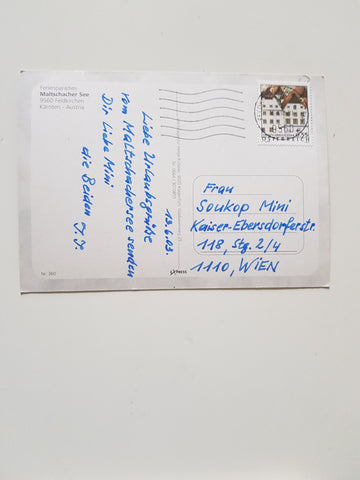 Ferienparadies
Maltschacher See
9560 Feldkirchen
Kärnten - Austria
13.6.03.
Liebe Urlaubsgrüße
vom Maltschachersee senden
Dir Liebe Mini
die Beiden J.J.
Nr. 360
EXPRESS
9560
ÖSTERREICH
Frau
Soukop Mini
Kaiser-Ebersdorferstr.
118, Stg. 2/4
1110, WIEN